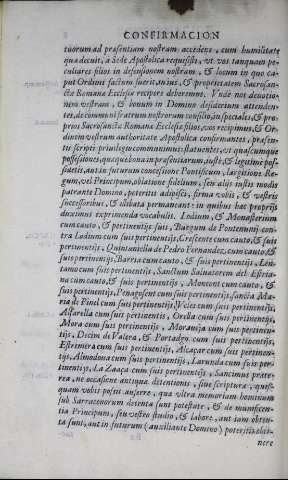 CONFIRMACION
tuorum ad præsentiam nostram accedens, cum humilitate
qua decuit, a Sede Apostolica requisisti, ut vos tanquam pe-
culiares filios in defensionem nostram, & locum in quo ca-
put Ordinis factum fuerit, in ius, & proprietatem Sacrosan-
ctæ Romanæ Ecclesiæ recipere deberemus. Vnde nos devotio-
nem vestram, & bonum in Domino desiderium attenden-
tes, de communi fratrum nostrorum consilio, in speciales, & pro-
prios Sacrosanctæ Romanæ Ecclesiæ filios, vos recipimus, & Or-
dinem vestrum authoritate Apostolica confirmantes, præsen-
tis scripti privilegio communimus: statuentes, ut quascumque
possessiones, quæque bona in præsentiarum, iuste, & legitime pos-
sidetis, aut in futurum concessione Pontificum, largitione Re-
gum, vel Principum, oblatione fidelium, seu alijs iustis modis
patrante Domino, poteritis adipisci, firma vobis, & vestris
successoribus, & illibata permaneant: in quibus hæc proprijs
duximus exprimenda vocabulis. Lodium, & Monasterium
cum cauto, & pertinentijs suis, Burgum de Pontenunij con-
tra Ladium cum suis pertinentijs, Crescente cum cauto, & suis
pertinentijs, Quintanella de Pedro Fernandez, cum cauto, &
suis pertinentijs, Barria cum cauto, & suis pertinentijs,
tano cum suis pertinentijs, Sanctum Salvatorem del
na cum cauto, & pertinentijs suis, Montont cum cauto, &
suis pertinentijs, Penagusent cum suis pertinentijs, sancta Ma-
ria de Pinel cum suis pertinentijs, Vcles cum suis pertinentijs,
Alfarella cum suis pertinentis, Orella cum suis pertinentijs,
Mora cum suis pertinentijs, Moratija cum suis pertinen-
tijs, Decimi de Valera, & Portadgo cum suis pertinentijs,
Estremera cum suis pertinentijs, Alcaçar cum suis pertinen-
tijs, Almodoua cum suis pertinentijs, Larunda cum suis per-
tinentijs, La Zaaça cum suis pertinentijs, Sancimus præte-
rea, ne occasione antiqua detentionis, sive scripturæ, quis-
quam vobis possit auferre, qua ultra memoriam hominum
sub Sarracenorum detenta sunt potestate, & de munificen-
tia Principum, seu vestro studio, & labore, aut iam obten-
ta sunt, aut in futurum (auxiliante Domino) poteritis obti-
nere